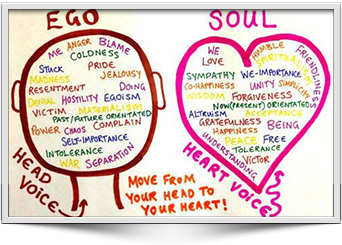 EGO
ME ANGER BLAME
COLDNESS
STUCK PRIDE
MADNESS JEALOUSY
RESENTMENT DOING
DENIAL HOSTILITY EGOISM
VICTIM MATERIALISM
PAST/FUTURE ORIENTATED
POWER CHAOS COMPLAIN
SELF-IMPORTANCE
INTOLERANCE
WAR SEPARATION
HEAD
VOICE
MOVE FROM
YOUR HEAD TO
YOUR HEART!
SOUL
WE HUMBLE FRIENDLINESS
LOVE SPIRITUALISM
SYMPATHY WE-IMPORTANCE
CO-HAPPINESS UNITY
WISDOM FORGIVENESS
NOW(PRESENT) ORIENTATED
ALTRUISM ACCEPTANCE
GRATEFULNESS BEING
HAPPINESS
PEACE FREE
UNDERSTANDING TOLERANCE
VICTOR
HEART VOICE